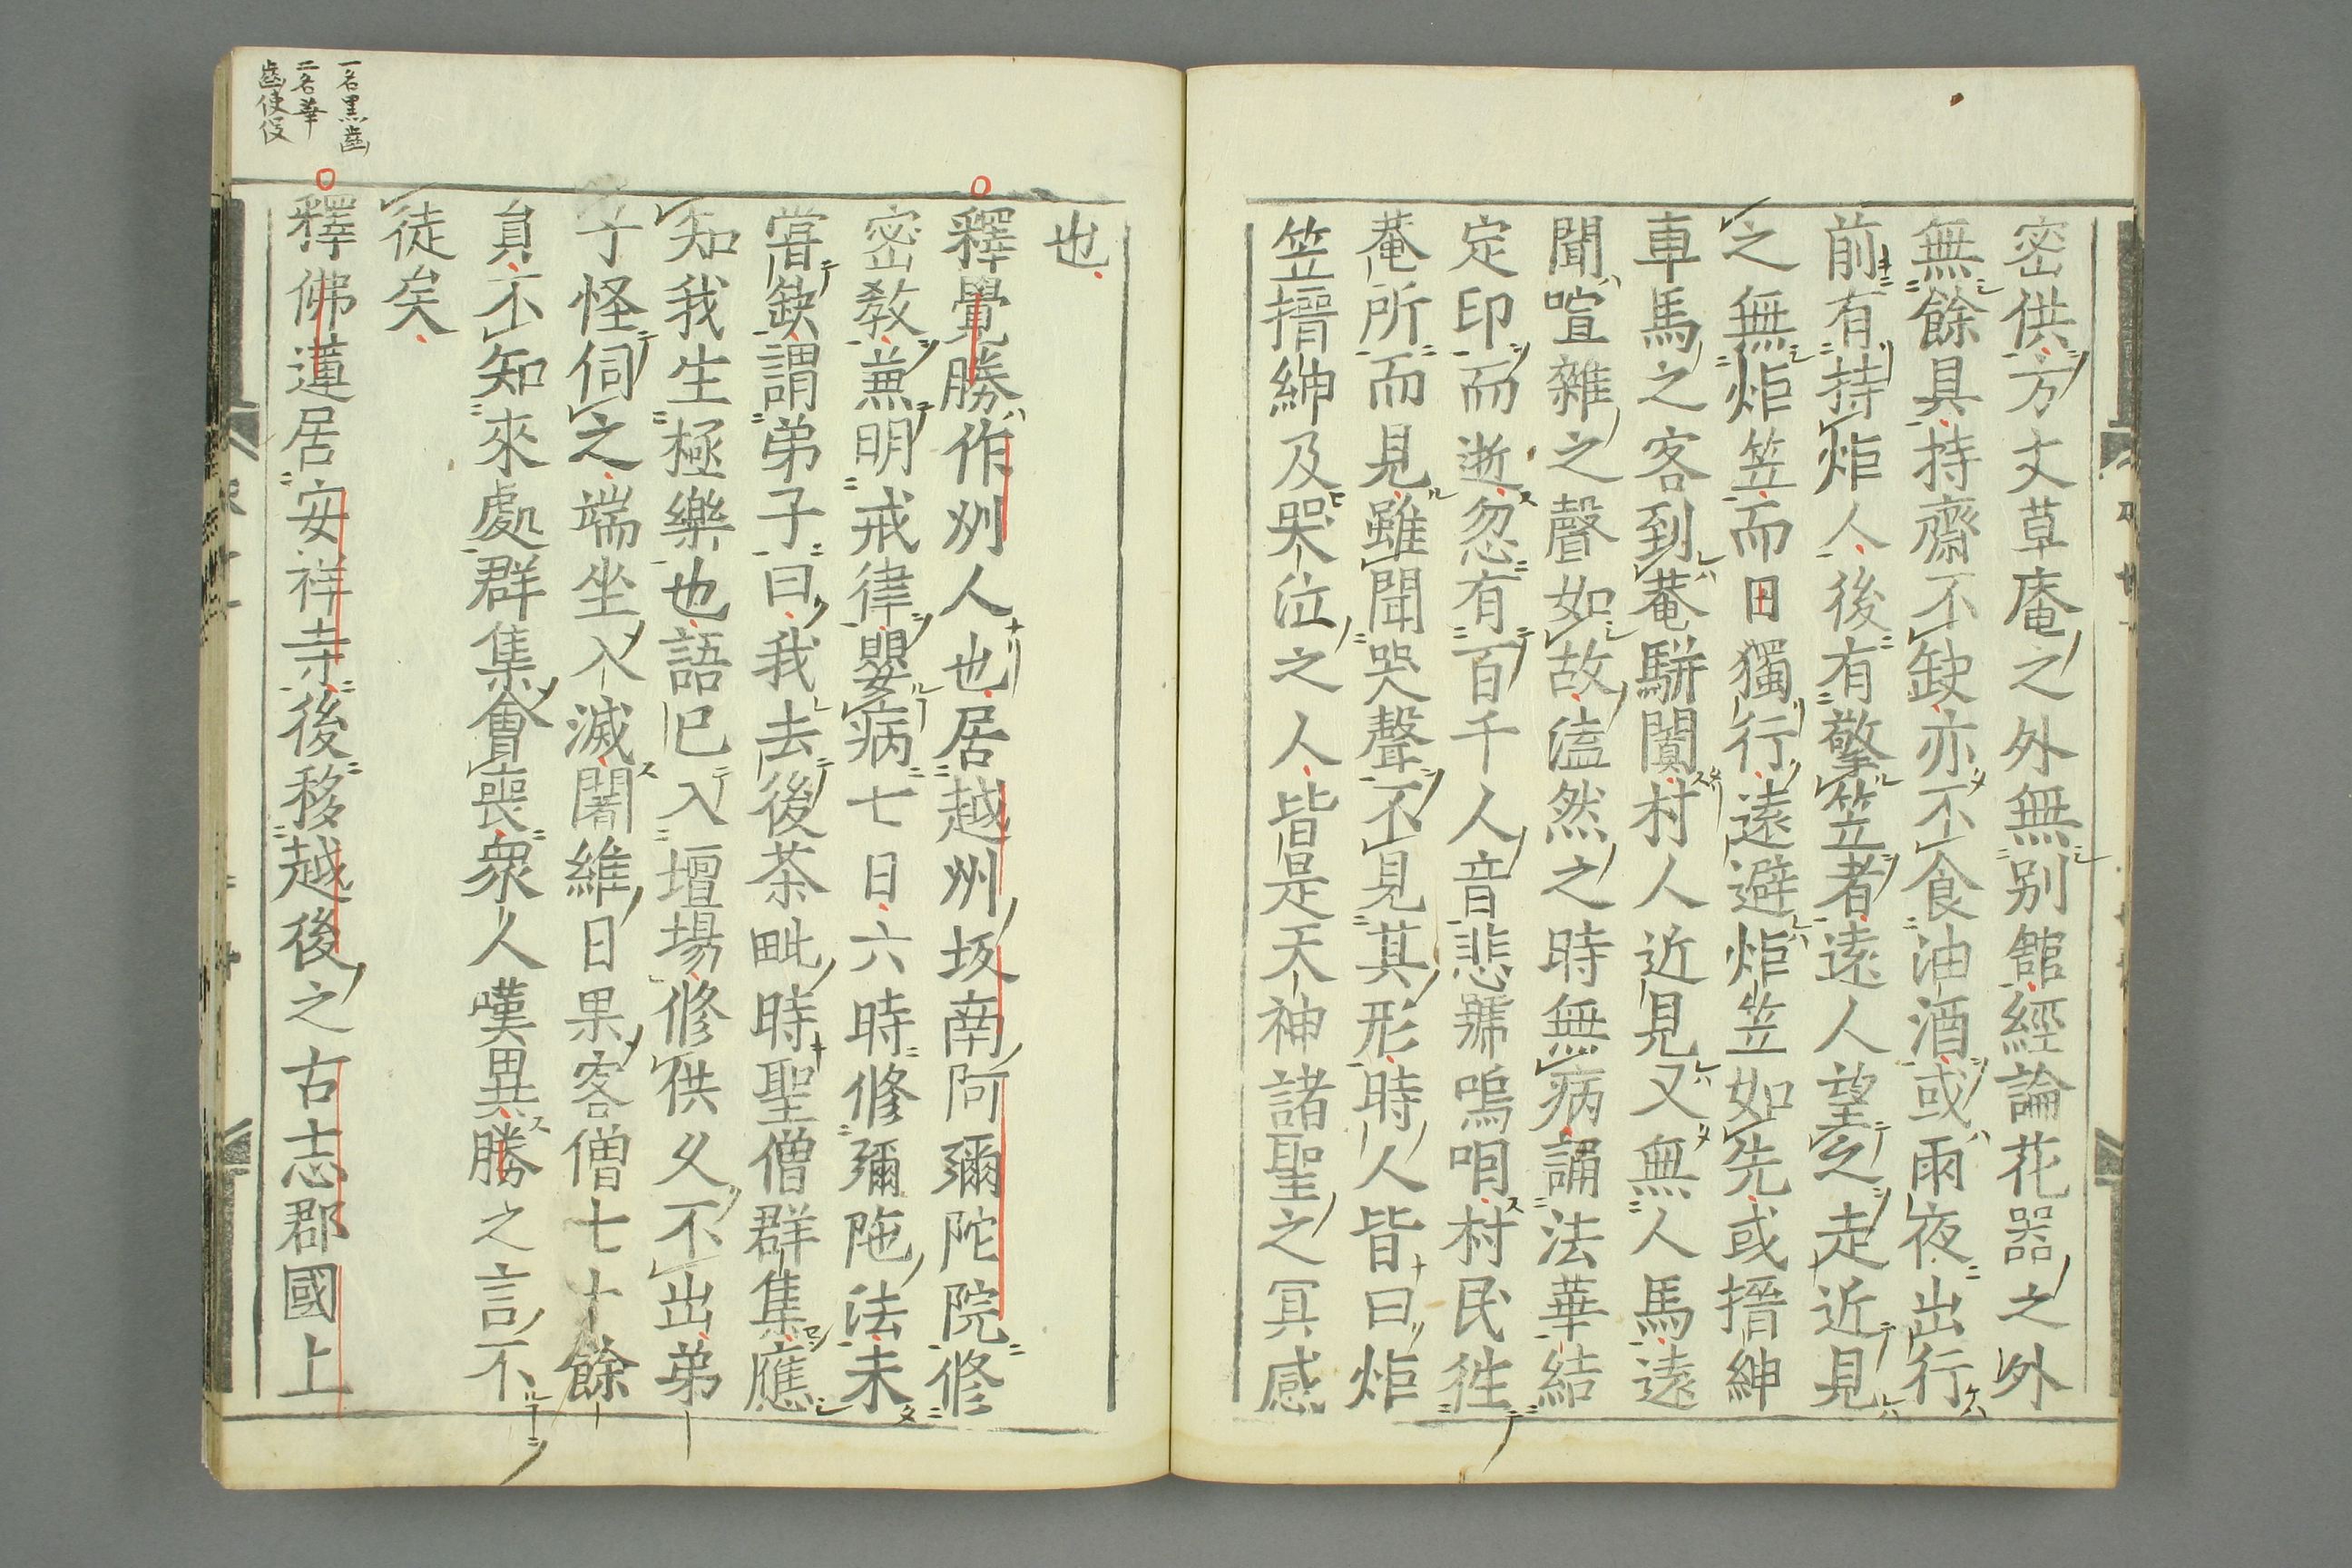 密供方丈草庵之外無別館經論花器之外
無餘具持齋不缺亦不食油酒或雨夜出行
前有持炬人後有擎笠者遠人望之走近見
之無炬笠而曰獨行遠避炬笠如先或搢紳
車馬之客到菴駢闐村人近見又無人馬遠
聞喧雜之聲如故溘然之時無病誦法華結
定印而逝忽有百千人音悲號嗚咽村民徃
菴所而見雖聞哭聲不見其形時人皆曰炬
笠搢紳及哭泣之人皆是天神諸聖之冥感
也
釋覺勝作州人也居越州坂南阿彌陀院修
密教兼明戒律嬰病七日六時修彌陁法未
嘗缺謂弟子曰我去後茶毗時聖僧群集應
知我生極樂也語已入壇場修供久不出弟
子怪伺之端坐入滅闍維日果客僧七十餘
員不知來處群集會喪衆人嘆異勝之言不
徒矣
一名黒齒
二名華
齒使役
釋佛蓮居安祥寺後移越後之古志郡國上